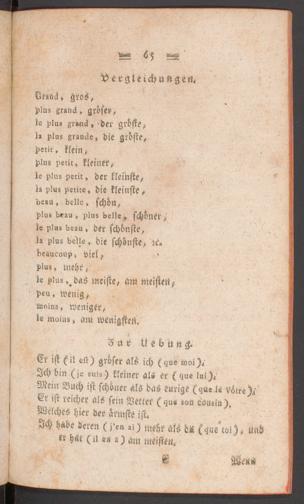 65
Vergleichungen.
Grand, gros,
plus grand, gröser,
le plus grand, der gröste,
la plus grande, die gröste,
petit, klein,
plus petit, kleiner,
le plus petit, der kleinste,
la plus petite, die kleinste,
beau, belle, schön,
plus beau, plus belle, schöner,
le plus beau, der schönste,
la plus belle, die schönste, ꝛc.
beaucoup, viel,
plus, mehr,
le plus, das meiste, am meisten,
peu, wenig,
moins, weniger,
le moins, am wenigsten.
Zur Uebung.
Er ist (il est) gröser als ich (que moi).
Ich bin (je suis) kleiner als er (que lui).
Mein Buch ist schöner als das eurige (que le vôtre).
Er ist reicher als sein Vetter (que son cousin).
Welches hier der ärmste ist.
Ich habe deren (j'en ai) mehr als du (que toi), und
er hat (il en a) am meisten.
E Wenn